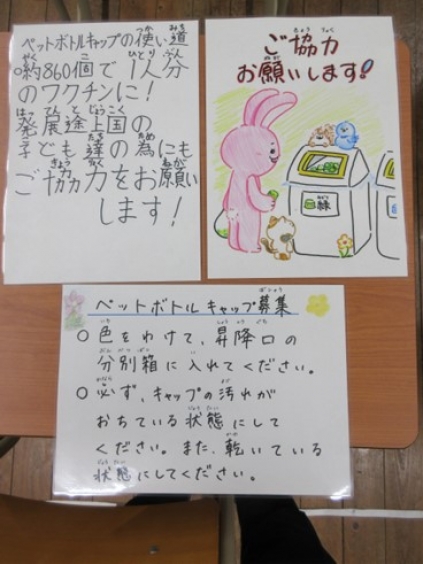 ペットボトルキャップの使い道
約860個で1人分
のワクチンに!
発展途上国の
子ども達の為にも
ご協力をお願い
します!
ご協力
お願いします!
緑
ペットボトルキャップ募集
○色をわけて、昇降口の
分別箱に入れてください。
○必ず、キャップの汚れが
おちている状態にして
ください。また、乾いている
状態にしてください。